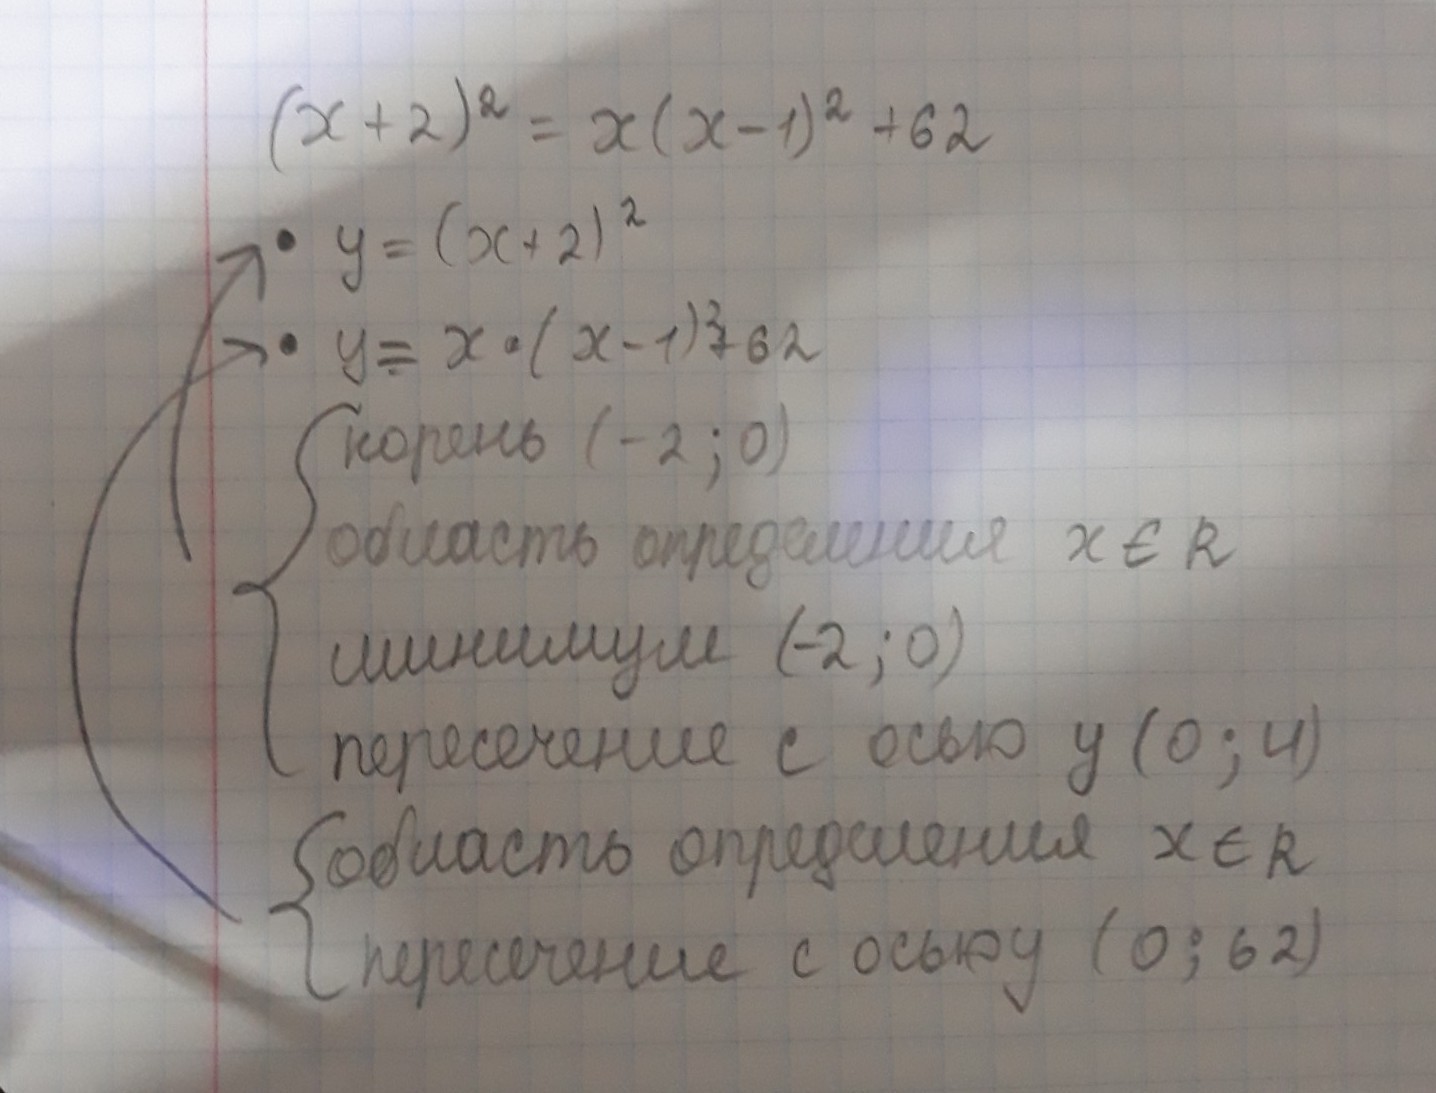 (x+2)² = x(x-1)² +62
• y = (x+2)²
• y = x•(x-1)²+62
корень (-2;0)
область определения x ∈ R
минимум (-2;0)
пересечение с осью y (0;4)
область определения x ∈ R
пересечение с осью y (0;62)